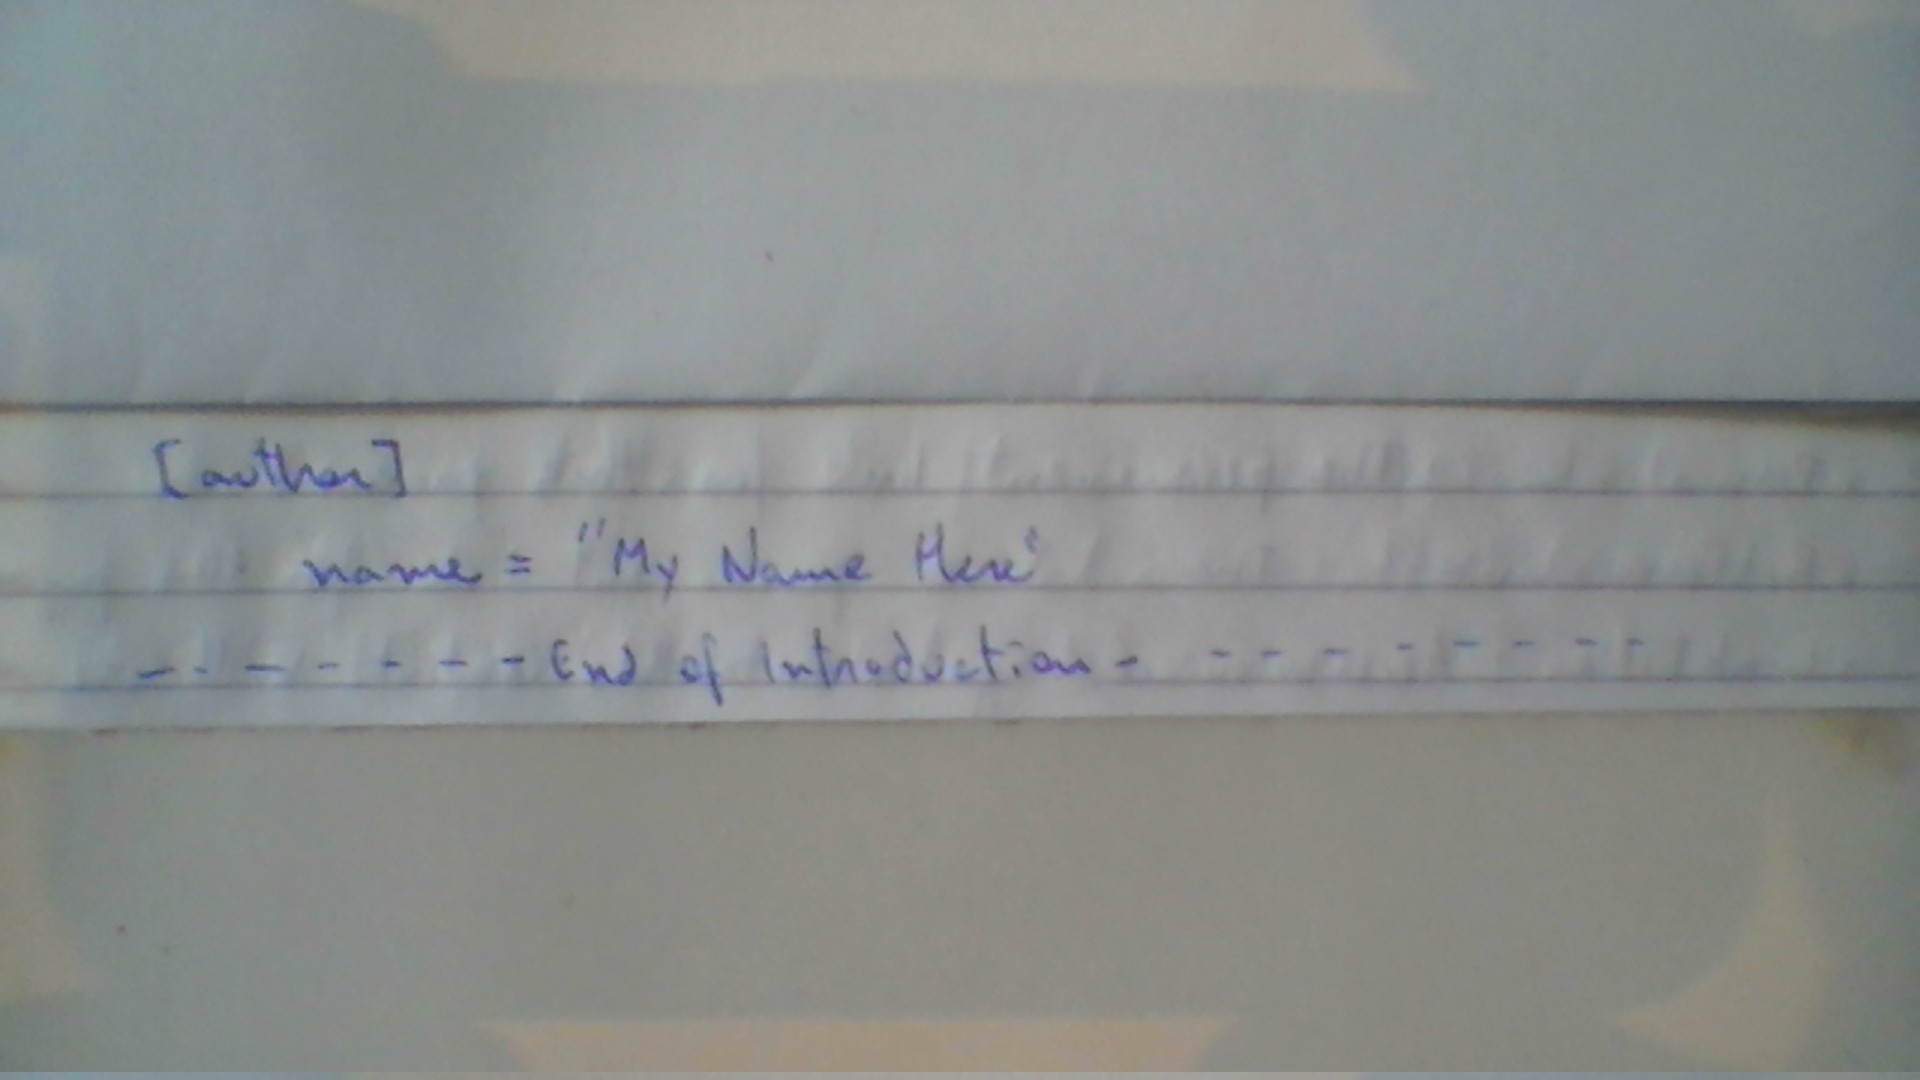 [author]
name = "My Name Here"
- - - - - - - End of Introduction - - - - - - - - -